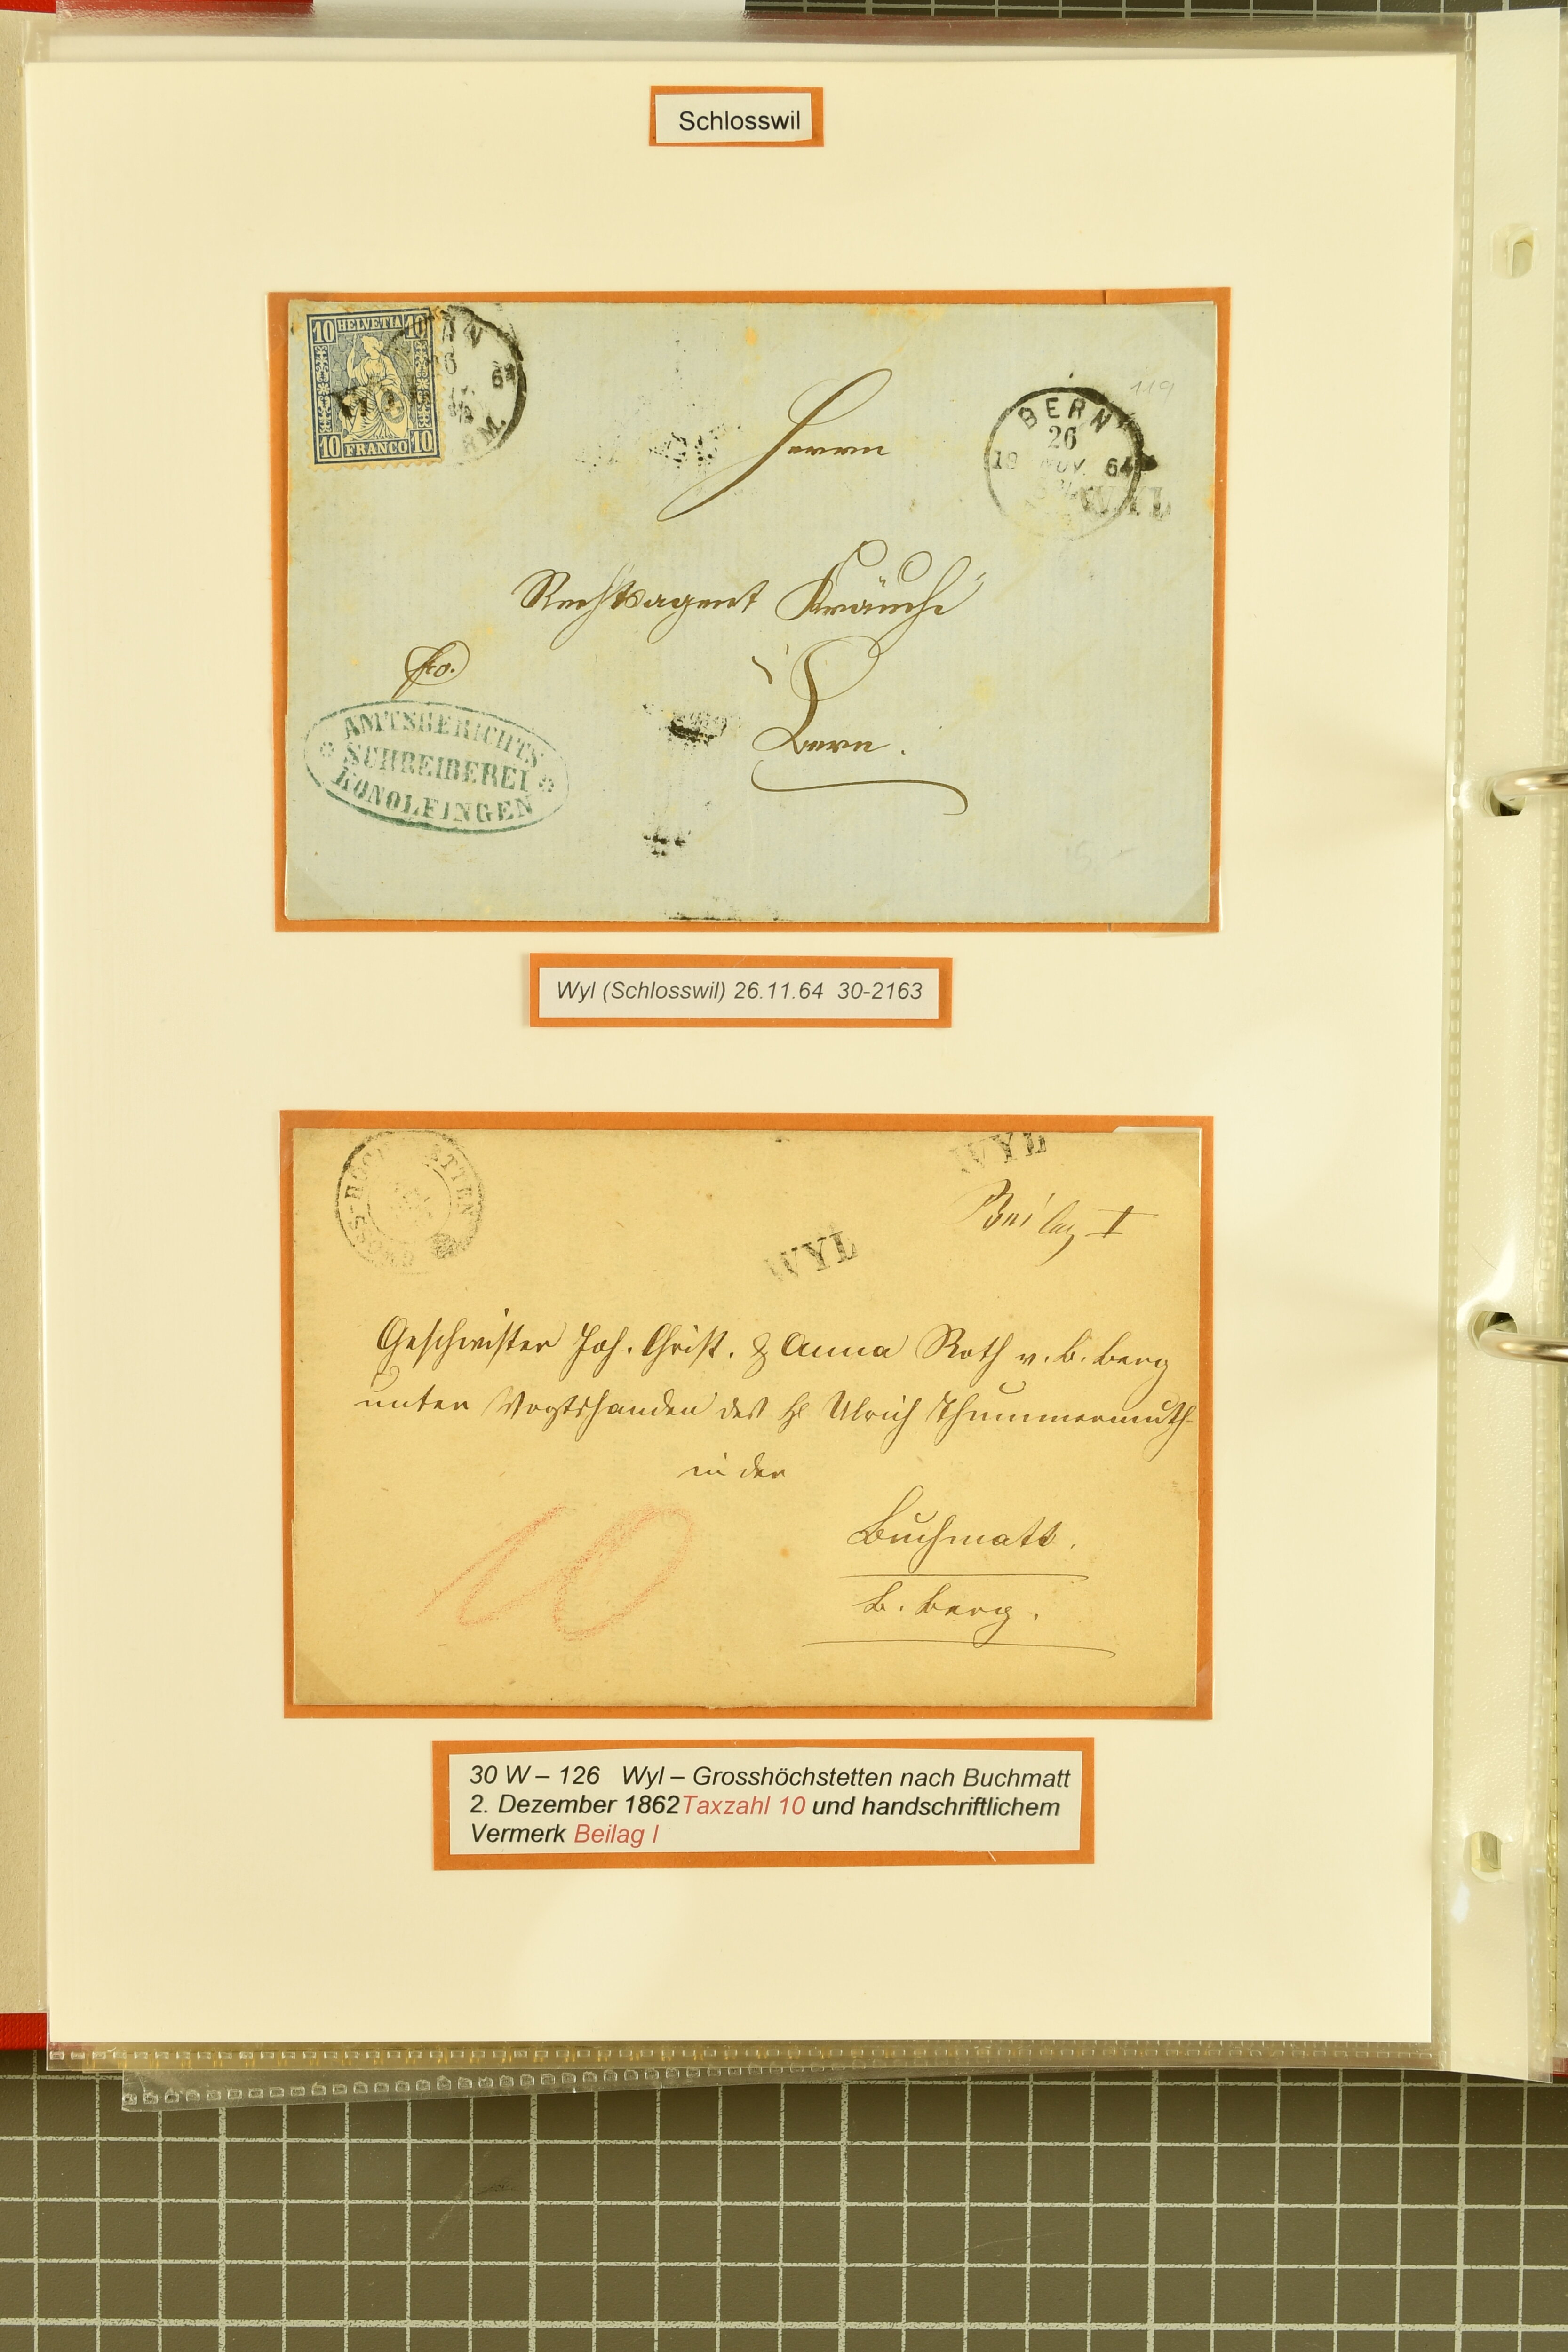 Schlosswil
10 HELVETIA 10
10 FRANCO 10
64
BERN
26
18 NOV. 64
WYL
119
Herrn
Rechtsagent Kräuchi
fco.
in
Bern.
AMTSGERICHTS
SCHREIBEREI
KONOLFINGEN
Wyl (Schlosswil) 26.11.64 30-2163
WYL
Beilag I
WYL
Geschwister Joh. Christ. & Anna Roth v. B.berg
unter Vogtshanden des H Ulrich Thummermuth
in der
Buchmatt.
B.berg.
10
30 W – 126 Wyl – Grosshöchstetten nach Buchmatt
2. Dezember 1862Taxzahl 10 und handschriftlichem
Vermerk Beilag I